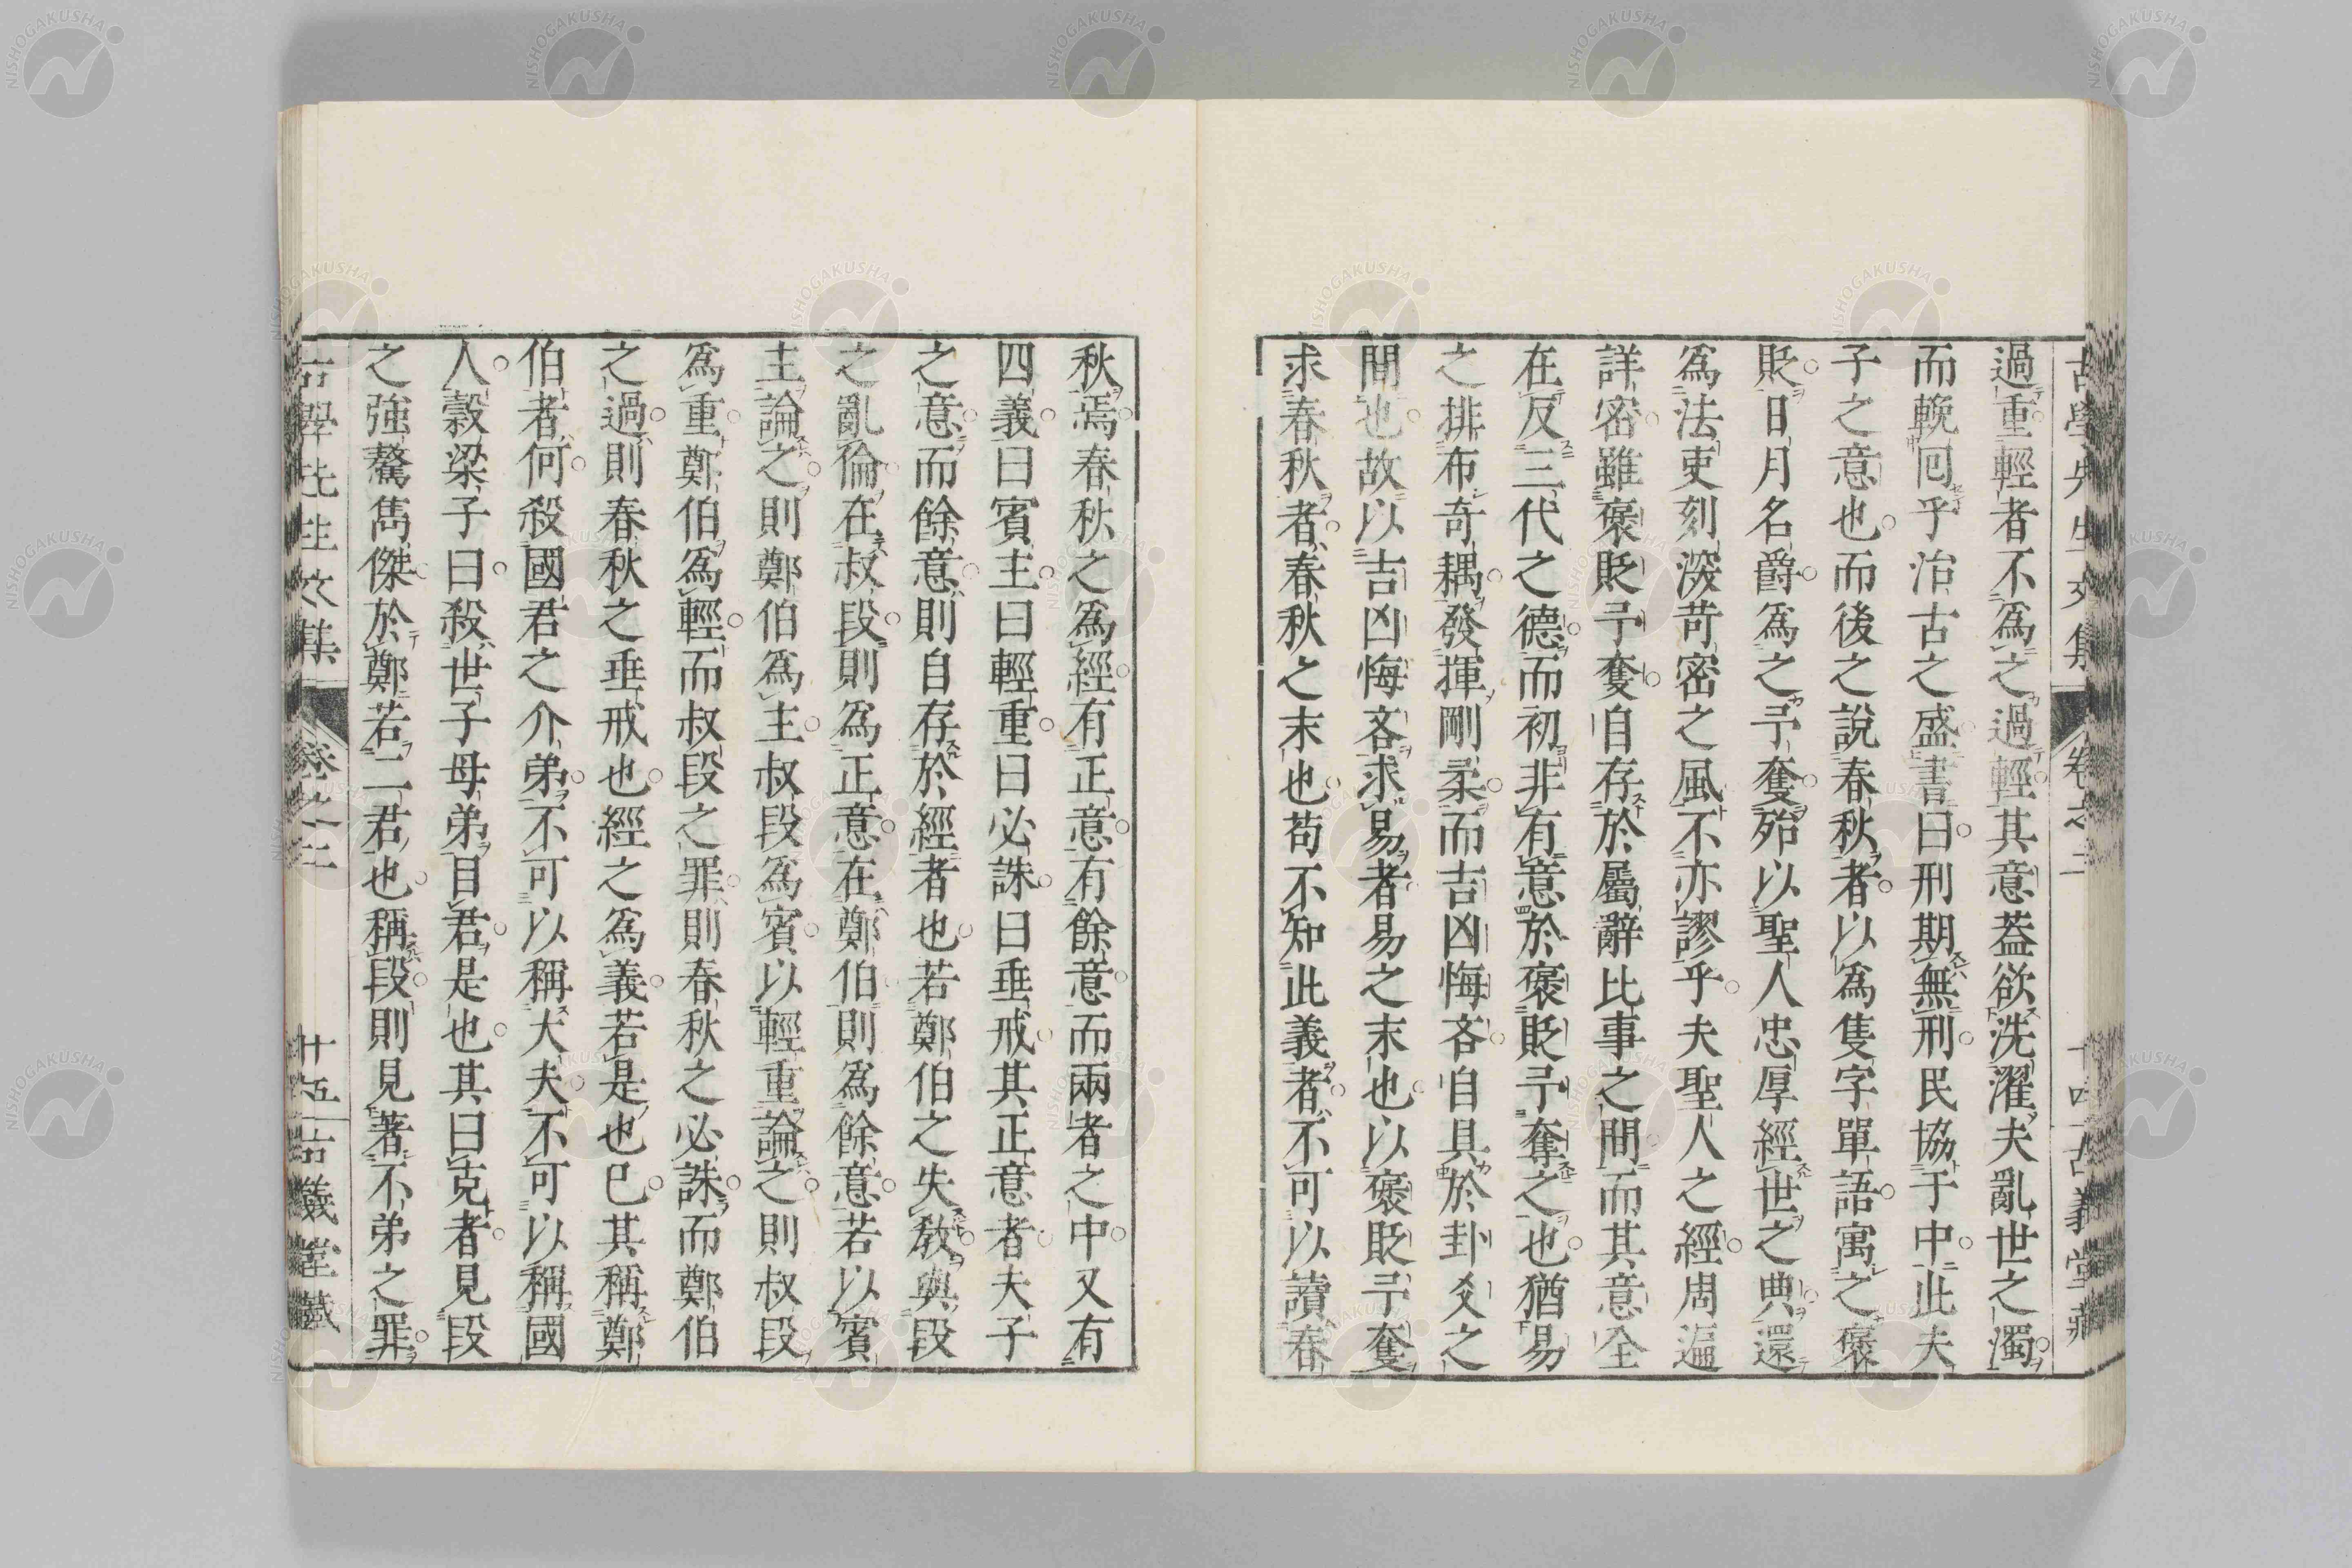 古學先生文集 卷之二 十四 古義堂藏
過重輕者不爲之過輕其意蓋欲洗濯夫亂世之濁
而輓回乎治古之盛書曰刑期無刑民協于中此夫
子之意也而後之說春秋者以爲隻字單語寓之褒
貶日月名爵爲之予奪殆以聖人忠厚經世之典還
爲法吏刻深苛密之風不亦謬乎夫聖人之經周遍
詳密雖褒貶予奪自存於屬辭比事之間而其意全
在反三代之德而初非有意於褒貶予奪之也猶易
之排布奇耦發揮剛柔而吉凶悔吝自具於卦爻之
間也故以吉凶悔吝求易者易之末也以褒貶予奪
求春秋者春秋之末也苟不知此義者不可以讀春
秋焉春秋之爲經有正意有餘意而兩者之中又有
四義曰賓主曰輕重曰必誅曰垂戒其正意者夫子
之意而餘意則自存於經者也若鄭伯之失敎與段
之亂倫在叔段則爲正意在鄭伯則爲餘意若以賓
主論之則鄭伯爲主叔段爲賓以輕重論之則叔段
爲重鄭伯爲輕而叔段之罪則春秋之必誅而鄭伯
之過則春秋之垂戒也經之爲義若是也已其稱鄭
伯者何殺國君之介弟不可以稱大夫不可以稱國
人穀梁子曰殺世子母弟目君是也其曰克者見段
之強驁雋傑於鄭若二君也稱段則見著不弟之罪
古學先生文集 卷之二 十五 古義堂藏
NISHOGAKUSHA